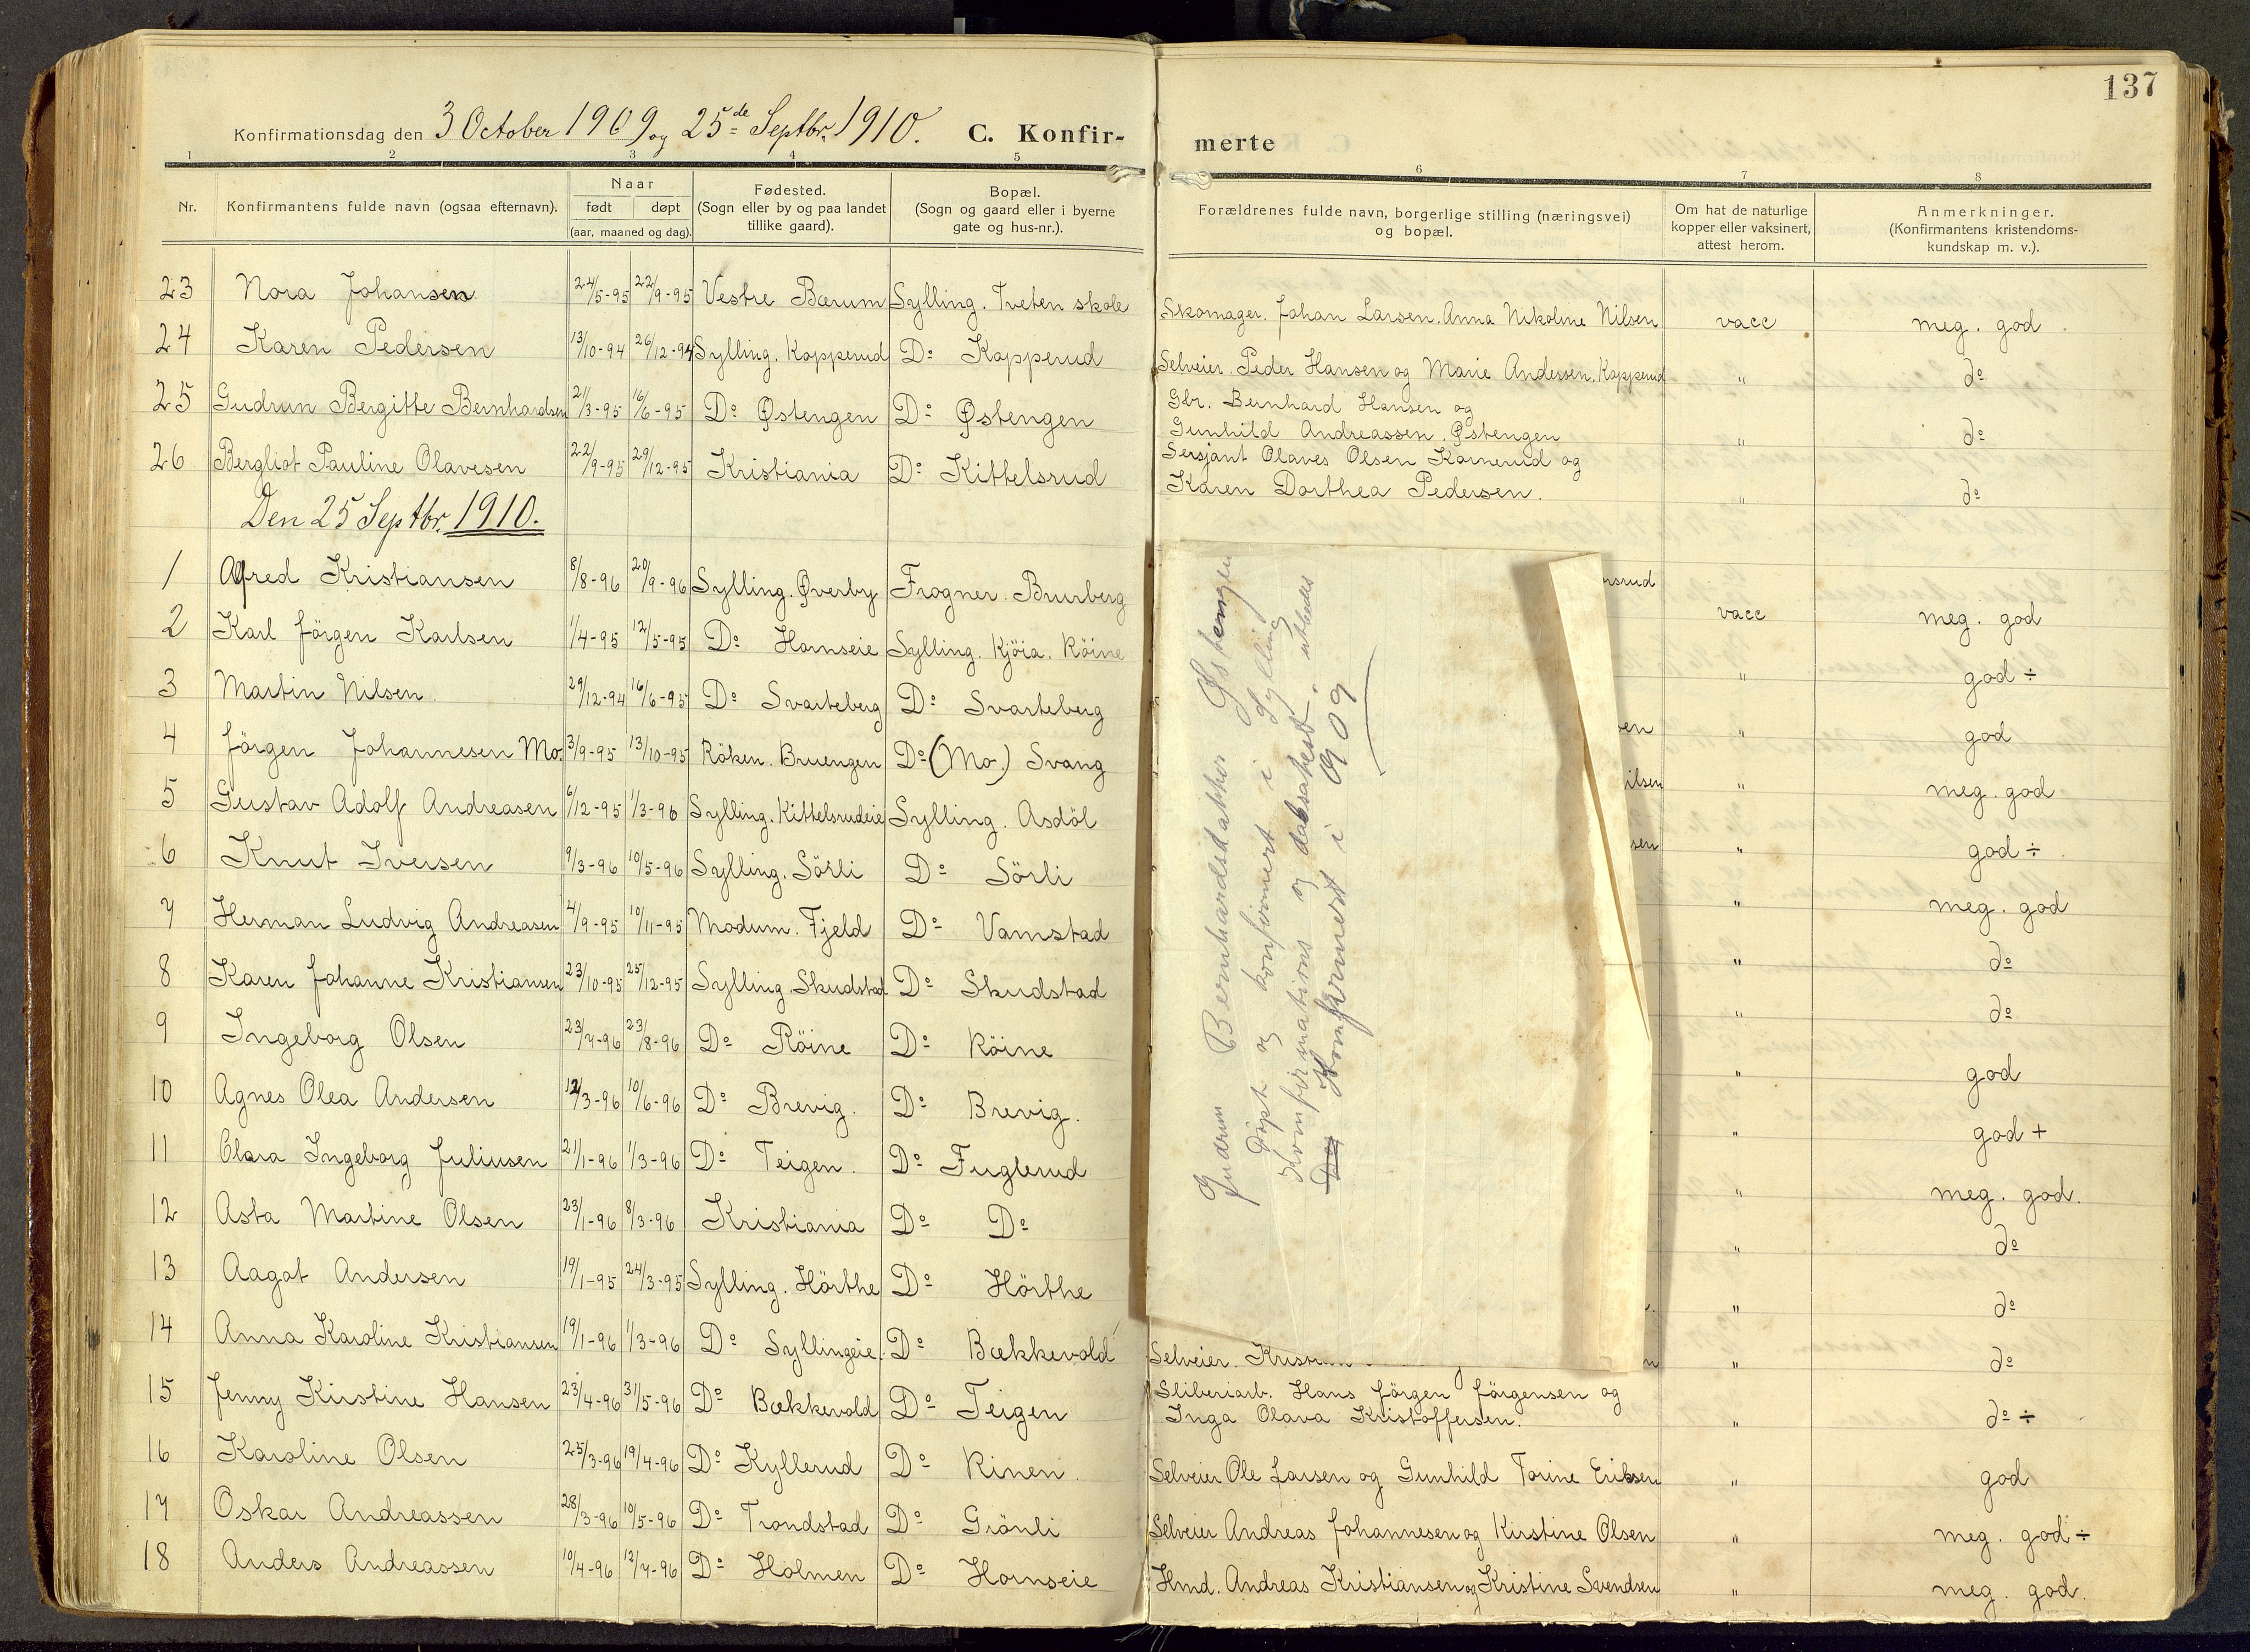 137
Konfirmationsdag den 3 October 1909 og 25de Septbr. 1910. C. Konfir-
merte
1 2 3 4 5 6 7 8
Nr. Konfirmantens fulde navn (ogsaa efternavn). Naar født døpt (aar, maaned og dag). Fødested. (Sogn eller by og paa landet tillike gaard). Bopæl. (Sogn og gaard eller i byerne gate og hus-nr.). Forældrenes fulde navn, borgerlige stilling (næringsvei) og bopæl. Om hat de naturlige kopper eller vaksinert, attest herom. Anmerkninger. (Konfirmantens kristendoms-kundskap m. v.).
23 Nora Johansen 24/5-95 22/9-95 Vestre Bærum Sylling. Tveten skole Skomager. Johan Larsen. Anna Nikoline Nilsen vacc meg. god.
24 Karen Pedersen 13/10-94 26/12-94 Sylling. Kopperud Do Kopperud Selveier. Peder Hansen og Marie Andersen. Kopperud " do
25 Gudrun Bergitte Bernhardsen 21/3-95 16/6-95 Do Østengen Do Østengen Gbr. Bernhard Hansen og
Gunhild Andreassen. Østengen " do
26 Bergliot Pauline Olavesen 22/9-95 29/12-95 Kristiania Do Kittelsrud Sersjant Olaves Olsen Kornerud og
Karen Dorthea Pedersen. " do
Den 25 Septbr. 1910.
1 Alfred Kristiansen 8/8-96 20/9-96 Sylling. Øverby Frogner. Brurberg rsrud vacc meg. god
2 Karl Jörgen Karlsen 1/4-95 12/5-95 Do Hornseie Sylling. Kjöia. Röine " god ÷
3 Martin Nilsen. 29/12-94 16/6-95 Do Svarteberg Do Svarteberg en " god
4 Jörgen Johannesen Mo. 3/9-95 13/10-95 Röken. Bruengen Do (Mo.) Svang ilsen " meg. god
5 Gustav Adolf Andreasen 6/12-95 1/3-96 Sylling. Kittelsrudeie Sylling. Asdöl sen " god ÷
6 Knut Iversen 9/3-96 10/5-96 Sylling. Sörli Do Sörli " meg. god
7 Herman Ludvig Andreasen 4/9-95 10/11-95 Modum. Fjeld Do Vamstad " do
8 Karen Johanne Kristiansen 23/10-95 25/12-95 Sylling. Skudstad Do Skudstad " do
9 Ingeborg Olsen 23/7-96 23/8-96 Do Röine Do Röine " god
10 Agnes Olea Andersen 3-96 10/6-96 Do Brevig. Do Brevig. " god +
11 Clara Ingeborg Juliusen 21/1-96 1/3-96 Do Teigen. Do Fuglerud " meg. god.
12 Asta Martine Olsen 23/1-96 8/3-96 Kristiania Do Do " do
13 Aagot Andersen 19/1-95 24/3-95 Sylling. Hörthe Do Hörthe " do
14 Anna Karoline Kristiansen 19/1-96 1/3-96 Do Syllingeie. Do Bækkevold Selveier. " do
15 Jenny Kirstine Hansen 23/4-96 31/5-96 Do Bækkevold Do Teigen Sliberiarb. Hans Jörgen Jörgensen og
Inga Olava Kristoffersen. " do ÷
16 Karoline Olsen 25/3-96 19/4-96 Do Kyllerud Do Rinen. Selveier Ole Larsen og Gunhild Torine Eriksen " god
17 Oskar Andreassen 28/3-96 10/5-96 Do Trondstad Do Grönli Selveier Andreas Johannesen og Kirstine Olsen " meg. god ÷
18 Anders Andreassen 10/4-96 12/7-96 Do Holmen Do Hornseie Hmd. Andreas Kristiansen og Kristine Svendsen " meg. god.
Gudrun Bernhardsdatter Østengen
Döpt og konfirmert i Sylling
Konfirmations og daabsatest utbedes
Konfirmert i 1909